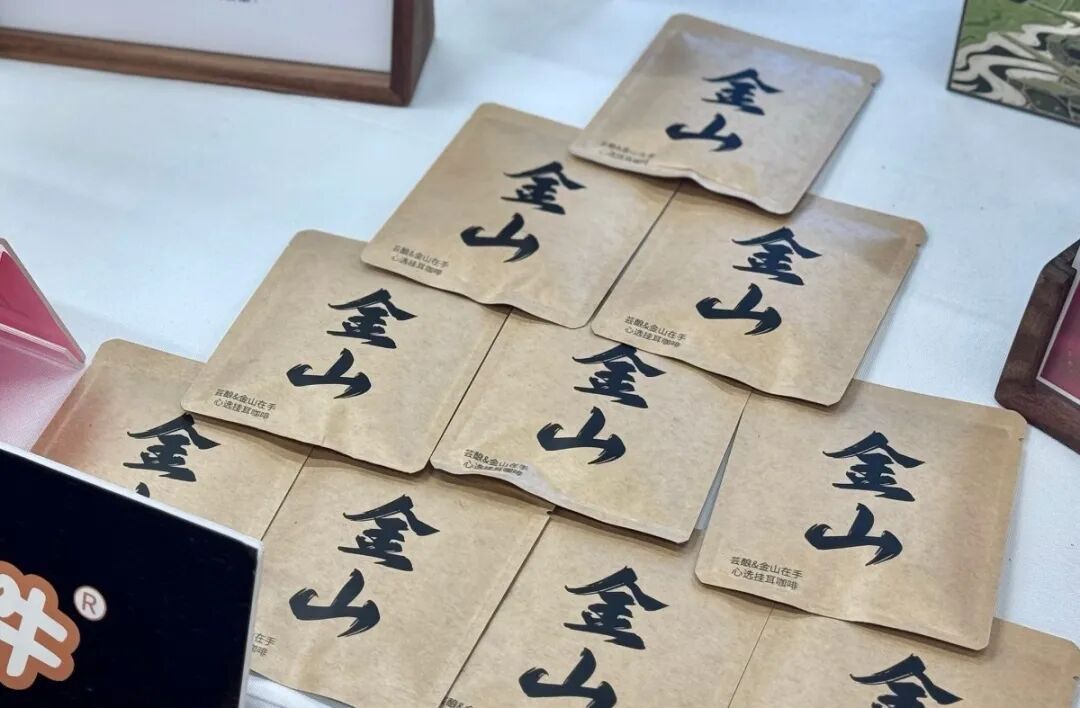 金
山
芸酿&金山在手
心选挂耳咖啡
金
山
芸酿&金山在手
心选挂耳咖啡
金
山
芸酿&金山在手
心选挂耳咖啡
金
山
芸酿&金山在手
心选挂耳咖啡
金
山
芸酿&金山在手
心选挂耳咖啡
金
山
芸酿&金山在手
心选挂耳咖啡
金
金
山
在手
咖啡
金
山
金
®